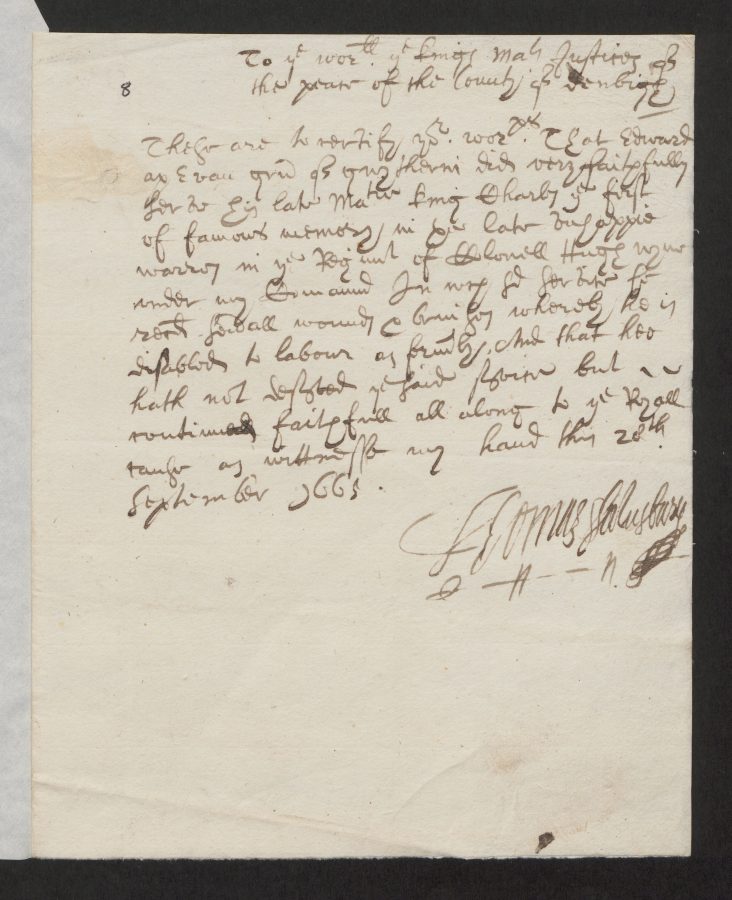 To ye worll. ye kings Matis Justices of
the peace of the County of Denbigh
8
These are to certify yor. worpps. That Edward
ap Evan of did very faithfully
serve his late Matie king Charles ye first
of famous memory, in ye late unhappie
warres in ye Regimt of Collonell Hugh wyne
under my Comaund In wch sd service he
recd. severall wounds & bruises whereby he is
disabled to labour as formly, And that hee
hath not deserted ye said service but
continued faithfull all along to ye Royall
cause as wittnesse my hand this 28th
September 1665.
Thomas Salusbury